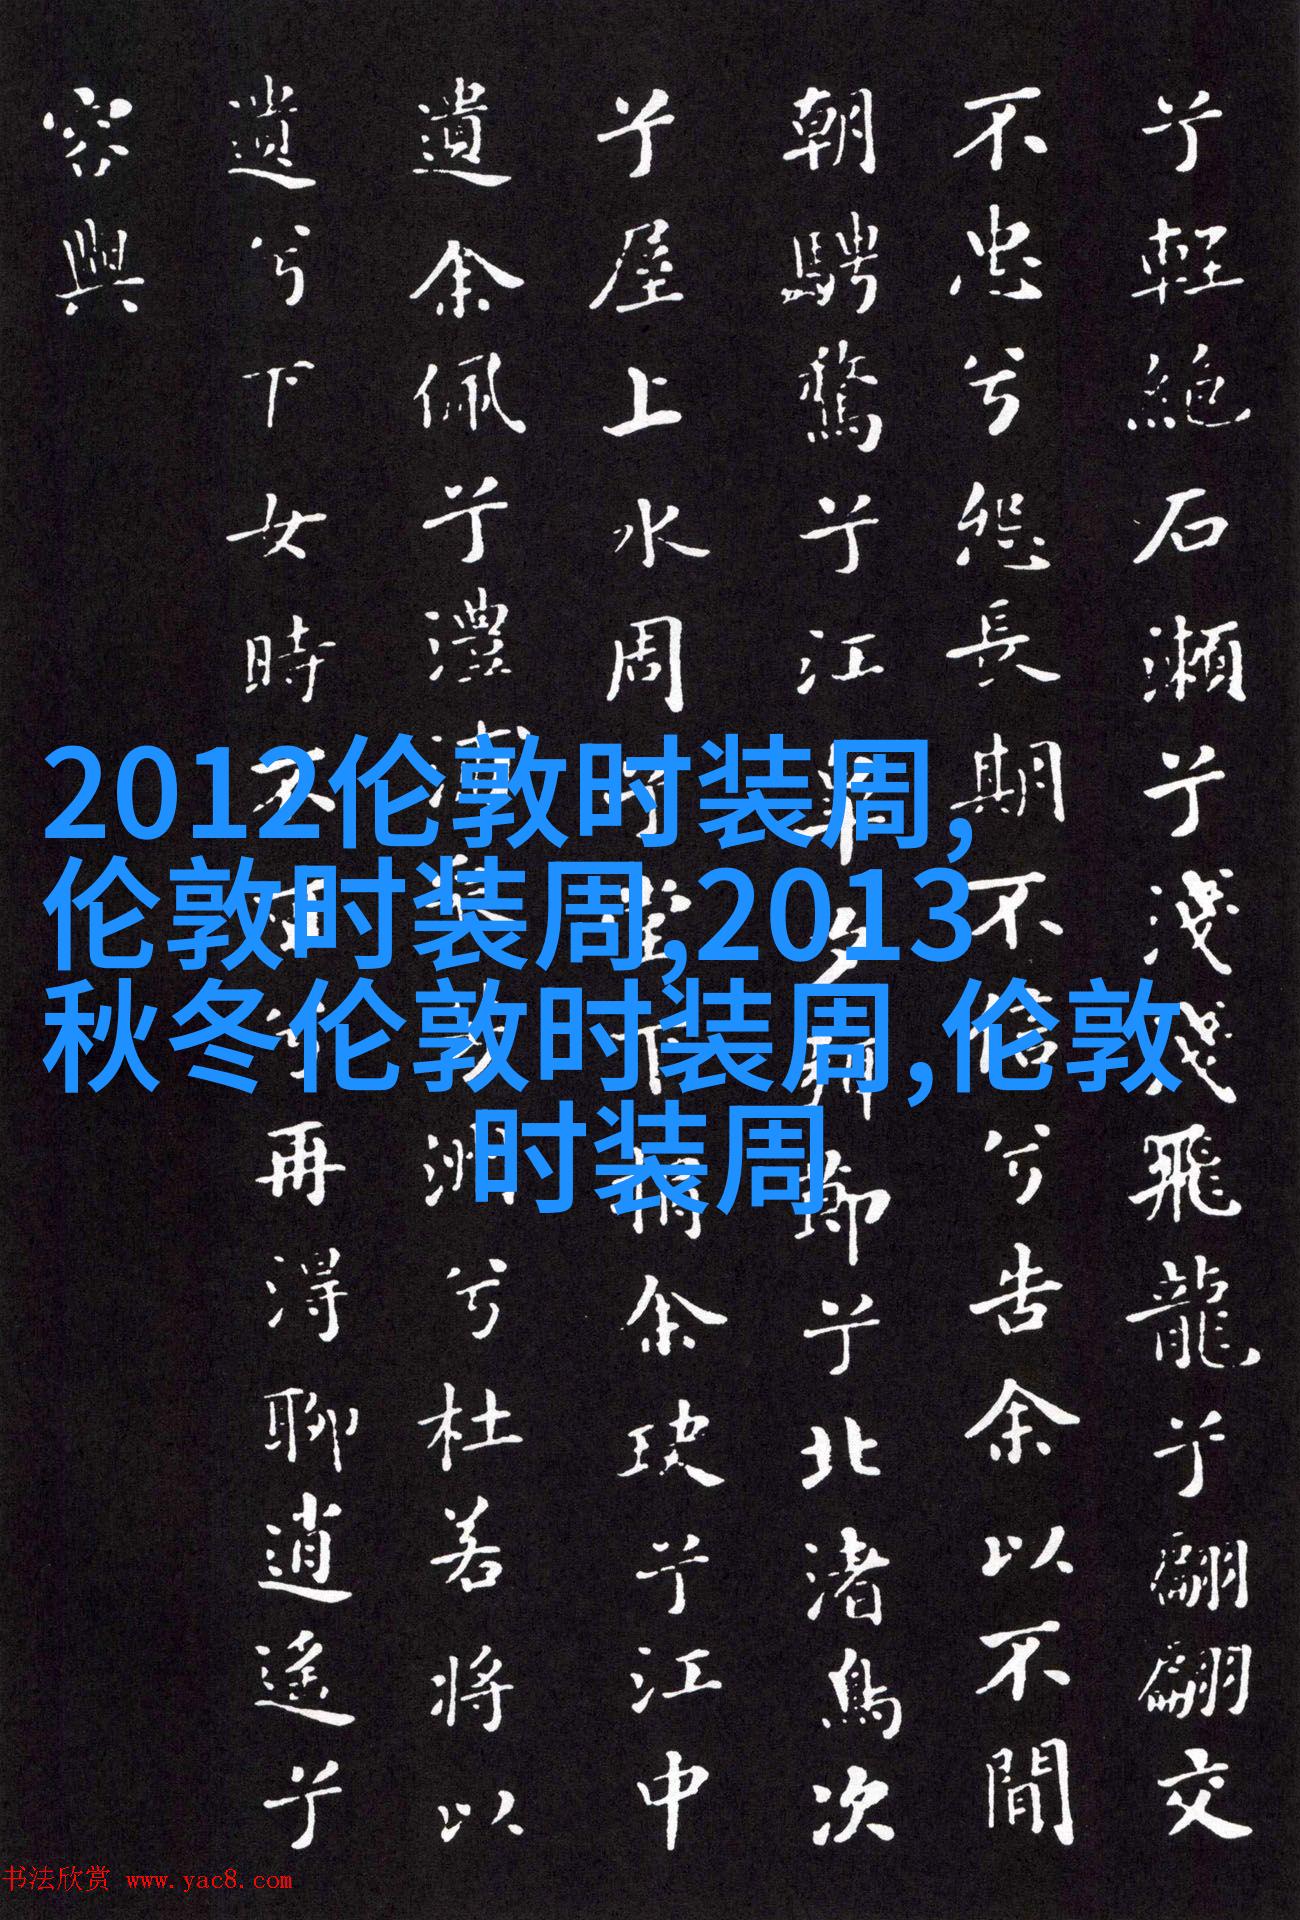 兮輕絶石瀨兮淺淺飛龍兮翩翩交
不忠兮怨長期不信兮告余以不閒
朝騁騖兮江皋夕弭節兮北渚鳥次
兮屋上水周兮堂下捐余玦兮江中
遺余佩兮澧浦采芳洲兮杜若將以
遺兮下女時不可兮再得聊逍遙兮
容與
2012伦敦时装周,
伦敦时装周,2013
秋冬伦敦时装周,伦敦
时装周
书法欣赏 www.yac8.com